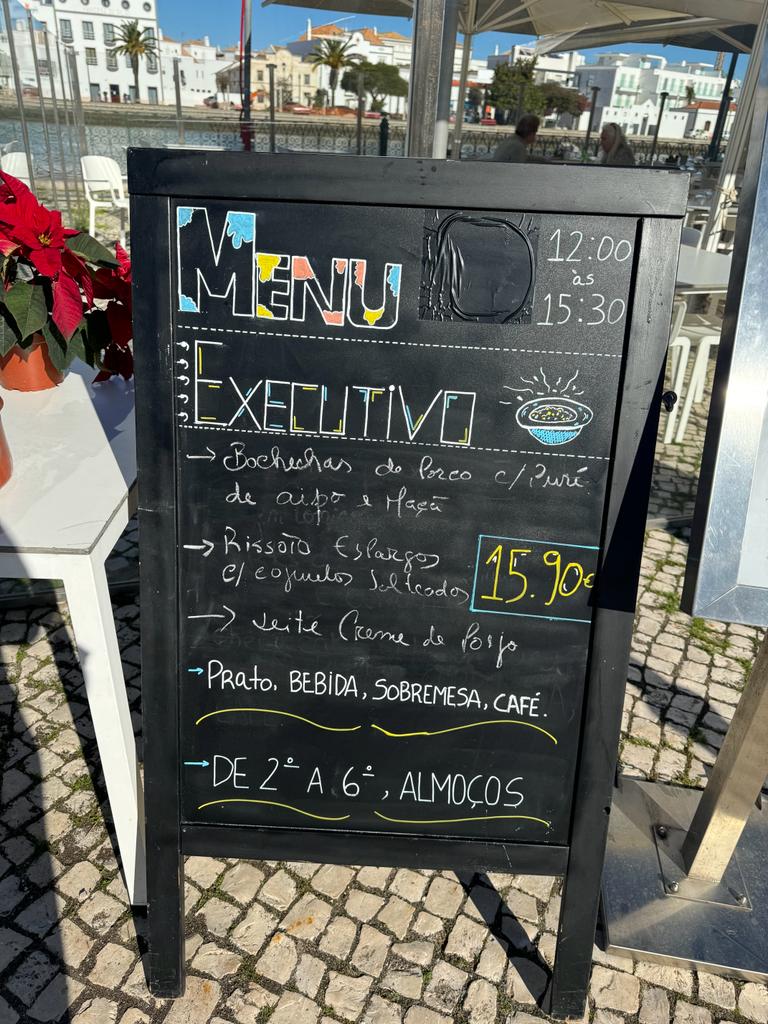 MENU
12:00
às
15:30
EXECUTIVO
→ Bochechas de Porco c/ Puré
de aipo e Maçã
→ Rissoto Espargos
c/ cogumelos Salteados
15.90€
→ Leite Creme de
→ Prato, BEBIDA, SOBREMESA, CAFÉ.
→ DE 2ª A 6ª, ALMOÇOS